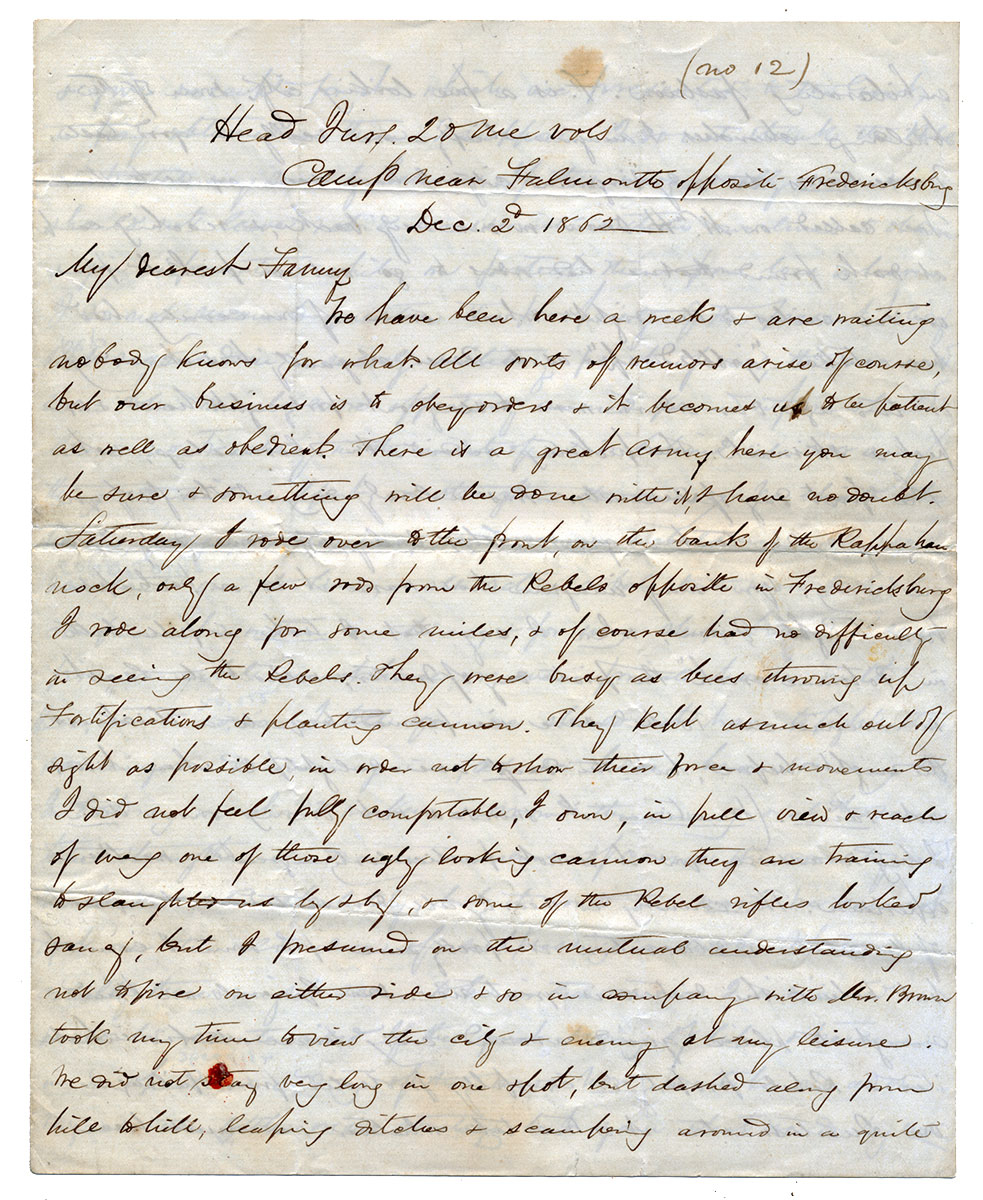 (no 12)
Head Qurs. 20 Me vols
Camp near Falmouth opposite Fredericksburg
Dec. 2d 1862
My dearest Fanny
We have been here a week & are waiting
nobody knows for what. All sorts of rumors arise of course,
but our business is to obey orders & it becomes us to be patient
as well as obedient. There is a great Army here you may
be sure & something will be done with it, I have no doubt.
Saturday I rode over to the front, on the bank of the Rappahan
nock, only a few rods from the Rebels opposite in Fredericksburg
I rode along for some miles, & of course had no difficulty
in seeing the Rebels. They were busy as bees throwing up
Fortifications & planting cannon. They kept as much out of
sight as possible, in order not to show their force & movements
I did not feel fully comfortable, I own, in full view & reach
of every one of those ugly looking cannon they are training
to slaughter us by & by, & some of the Rebel rifles looked
saucy, but I presumed on the mutual understanding
not to fire on either side & so in company with Mr. Brown
took my time to view the city & enemy at my leisure.
We did not stay very long in one spot, but dashed along from
hill to hill, leaping ditches & scampering around in a quite